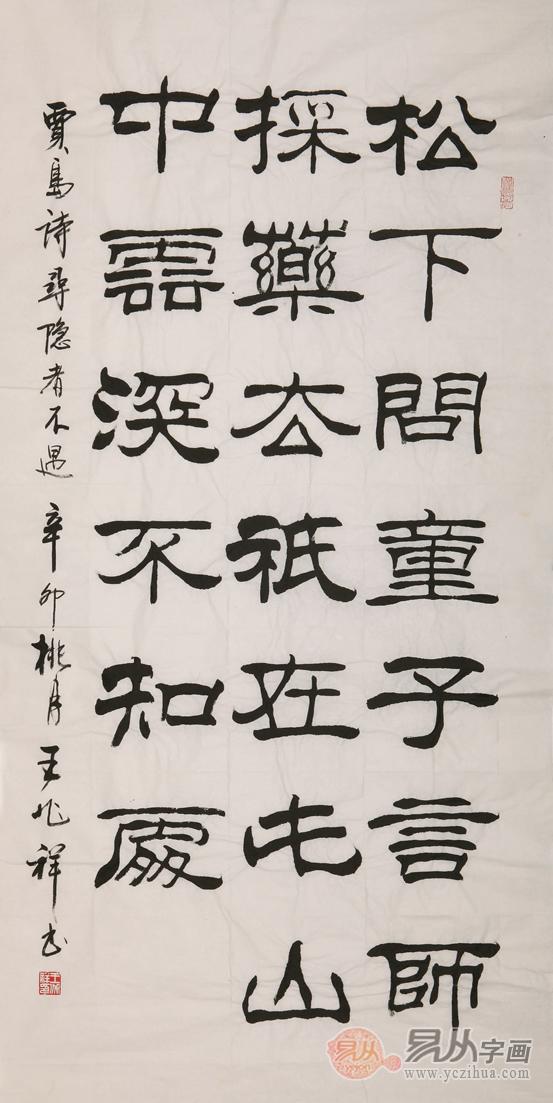 松下問童子言師
採藥去祇在此山
中雲深不知處
賈島诗尋隐者不遇 辛卯桃月 王兆祥书
易从
易从字画
www.yczihua.com